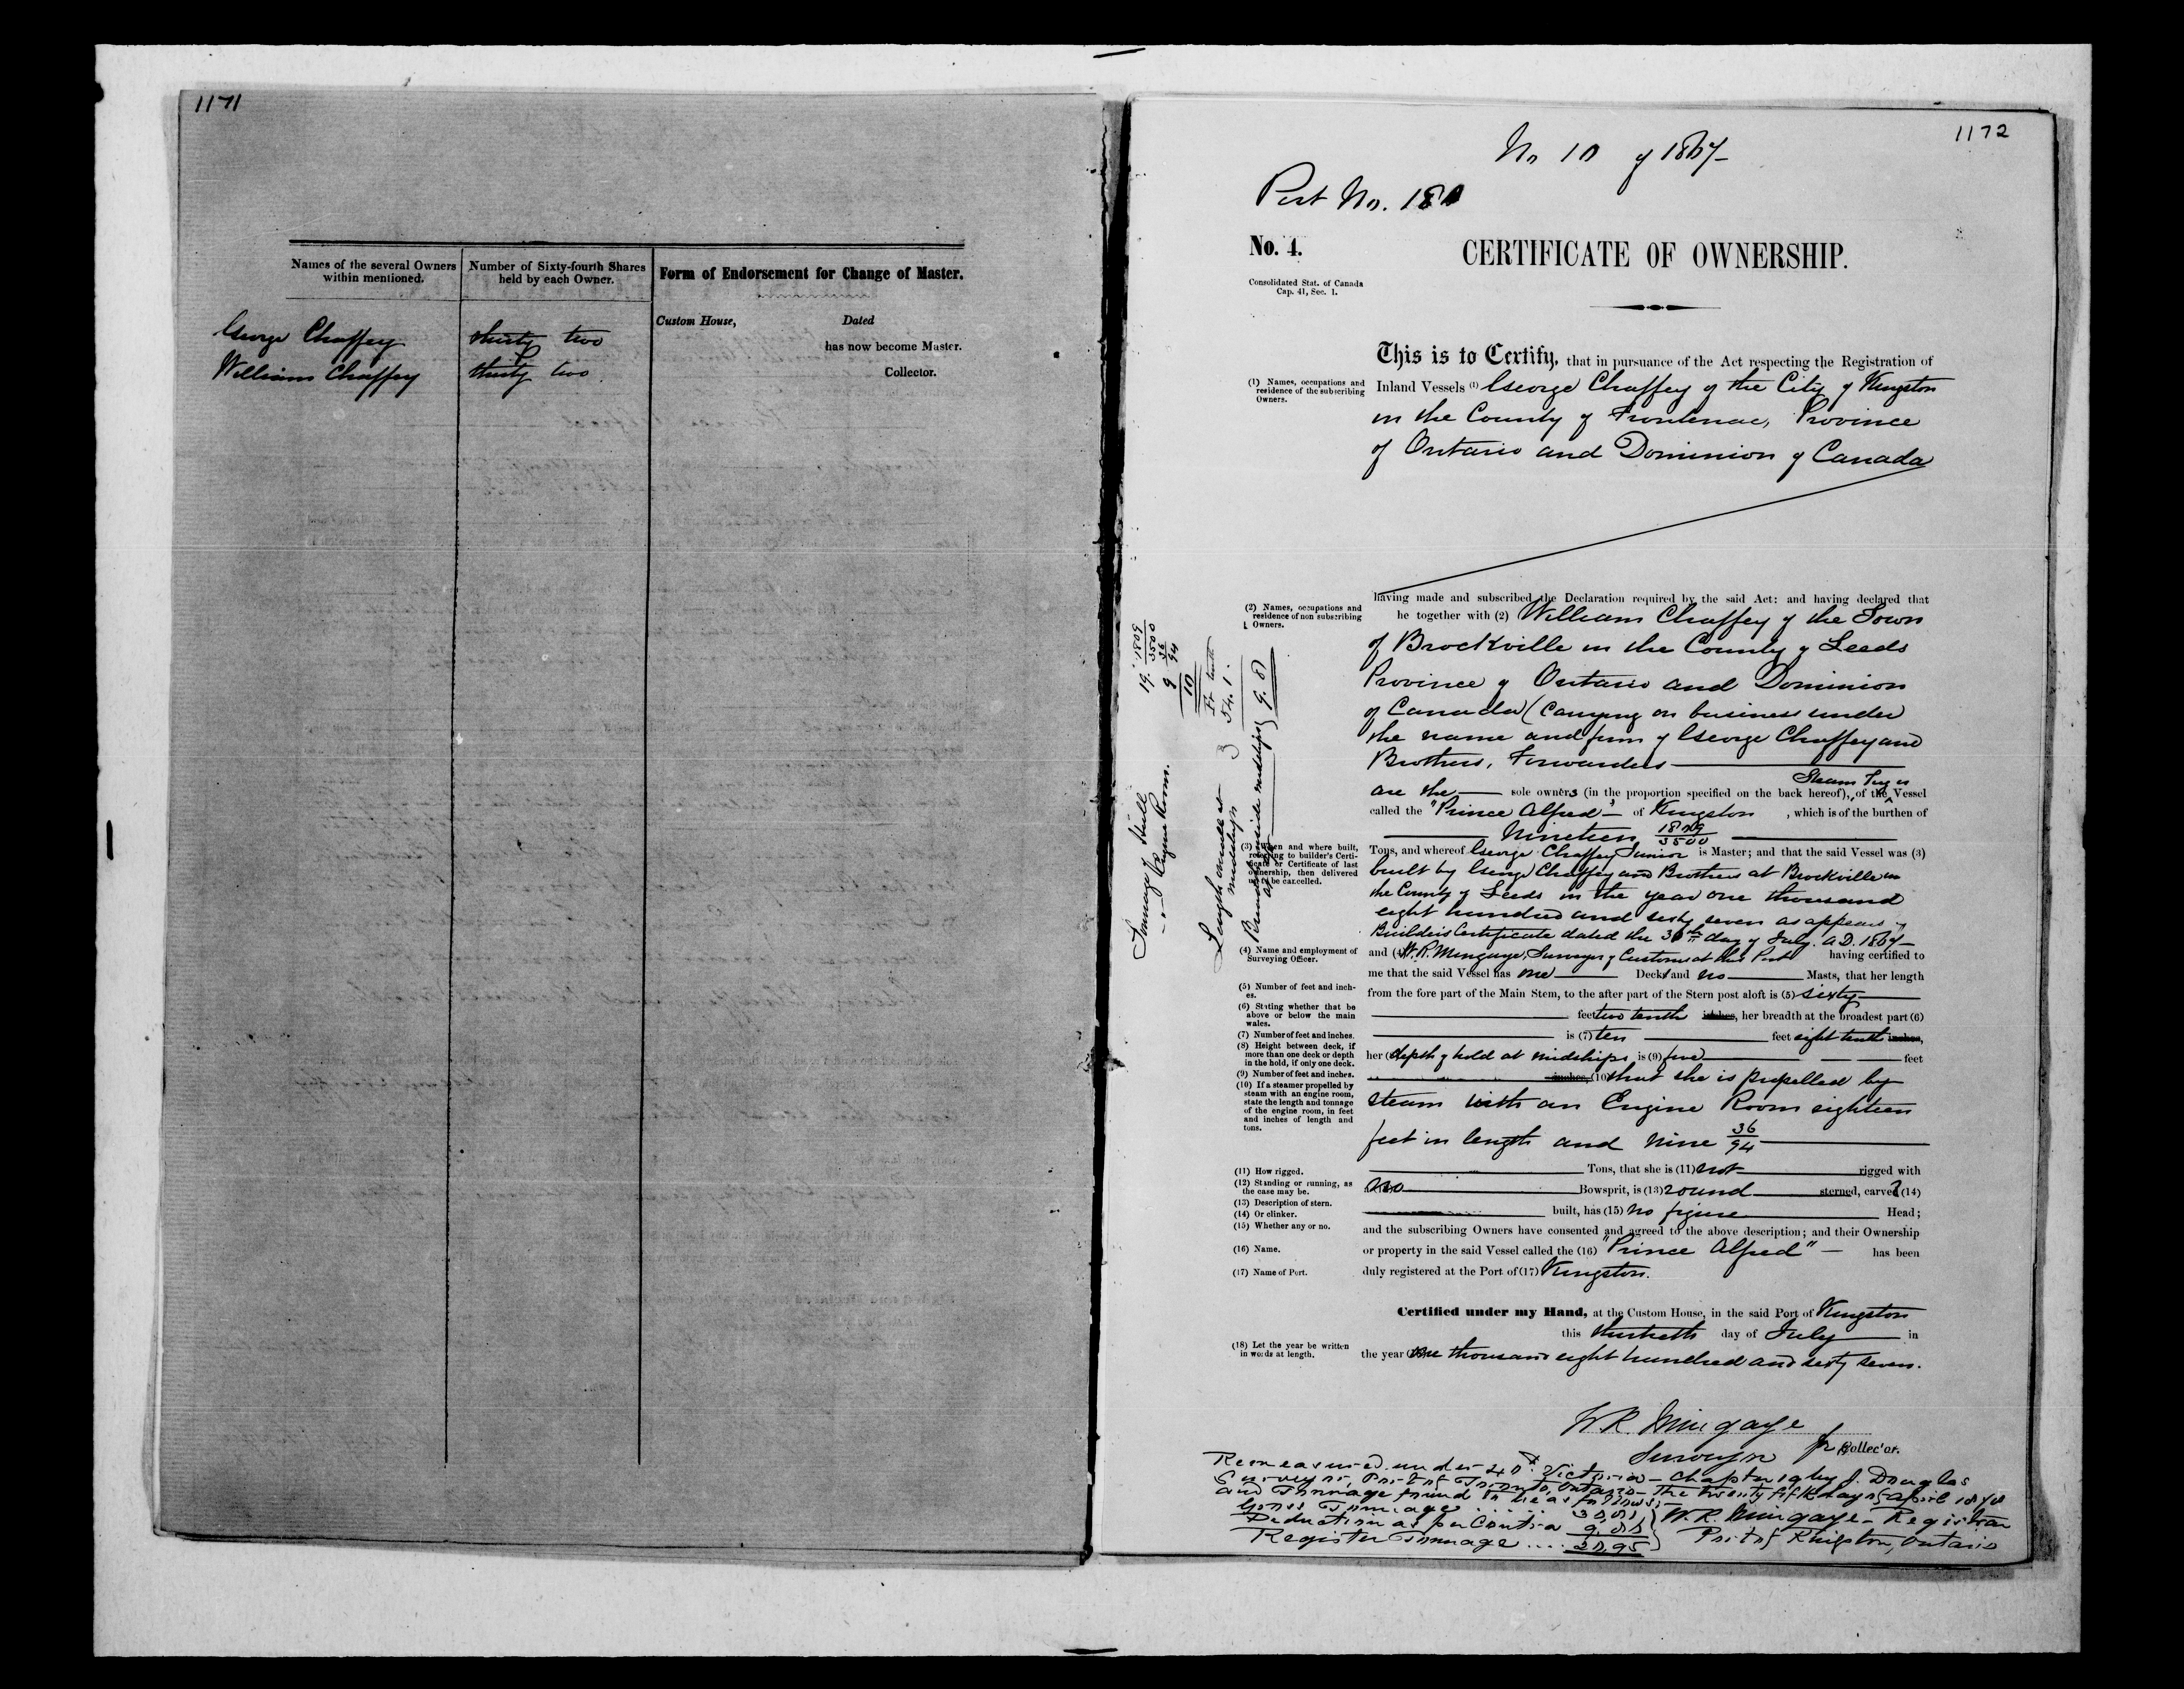 1171
Names of the several Owners within mentioned.
Number of Sixty-fourth Shares held by each Owner.
Form of Endorsement for Change of Master.
George Chaffey thirty two
William Chaffey thirty two
Custom House, Dated
has now become Master.
Collector.
1172
No 10 of 1867
Port No.
No. 4.
CERTIFICATE OF OWNERSHIP.
Consolidated Stat. of Canada
Cap. 41, Sec. 1.
This is to Certify, that in pursuance of the Act respecting the Registration of
(1) Names, occupations and
residence of the subscribing
Owners.
Inland Vessels (1) George Chaffey of the City of Kingston
in the County of Frontenac, Province
of Ontario and Dominion of Canada
having made and subscribed the Declaration required by the said Act: and having declared that
(2) Names, occupations and
residence of non subscribing
Owners.
he together with (2) William Chaffey of the Town
of Brockville in the County of Leeds
Province of Ontario and Dominion
of Canada (Carrying on business under
the name and firm of George Chaffey and
Brothers, Forwarders
Steam Tug or
are the sole owners (in the proportion specified on the back hereof), of the Vessel
called the "Prince Alfred" of Kingston , which is of the burthen of
Nineteen 1809/3500
(3) When and where built,
referring to builder's Certi-
ficate or Certificate of last
ownership, then delivered
up to be cancelled.
Tons, and whereof George Chaffey Junior is Master; and that the said Vessel was (3)
built by George Chaffey and Brothers at Brockville in
the County of Leeds in the year one thousand
eight hundred and sixty seven as appears by
Builders Certificate dated the 30th day of July. A.D. 1867
(4) Name and employment of
Surveying Officer.
and (4) W. R. Mingaye, Surveyor of Customs at this Port having certified to
me that the said Vessel has one Deck and no Masts, that her length
(5) Number of feet and inch-
es.
from the fore part of the Main Stem, to the after part of the Stern post aloft is (5) sixty
(6) Stating whether that be
above or below the main
wales.
feet two tenth inches, her breadth at the broadest part (6)
(7) Number of feet and inches.
is (7) ten feet eight tenth inches,
(8) Height between deck, if
more than one deck or depth
in the hold, if only one deck.
her (8) depth of hold at midships is (9) five feet
(9) Number of feet and inches.
inches, (10) that she is propelled by
(10) If a steamer propelled by
steam with an engine room,
state the length and tonnage
of the engine room, in feet
and inches of length and
tons.
steam with an Engine Room eighteen
feet in length and nine 36/94
(11) How rigged.
Tons, that she is (11) not rigged with
(12) Standing or running, as
the case may be.
a no Bowsprit, is (13) round sterned, carvel (14)
(13) Description of stern.
(14) Or clinker.
built, has (15) no figure Head;
(15) Whether any or no.
and the subscribing Owners have consented and agreed to the above description; and their Ownership
(16) Name.
or property in the said Vessel called the (16) "Prince Alfred" has been
(17) Name of Port.
duly registered at the Port of (17) Kingston.
Certified under my Hand, at the Custom House, in the said Port of Kingston
this thirtieth day of July in
(18) Let the year be written
in words at length.
the year one thousand eight hundred and sixty seven.
W R Mingaye
Surveyor for Collector.
Remeasured under 40th Victoria - Chapter 19 by J. Douglas
Surveyor, Port of Toronto, Ontario - the twenty fifth day of April 1878
and Tonnage found to be as follows:-
Gross Tonnage
Deduction as per Contra
Register Tonnage .... 20.95
W. R. Mingaye - Registrar
Port of Kingston, Ontario
Tonnage of Hull 19. 1809/3500
" " Engine Room. 9 36/94
10
Ft tenth
Length overall at midships 54. 1
Breadth inside midships 9. 8